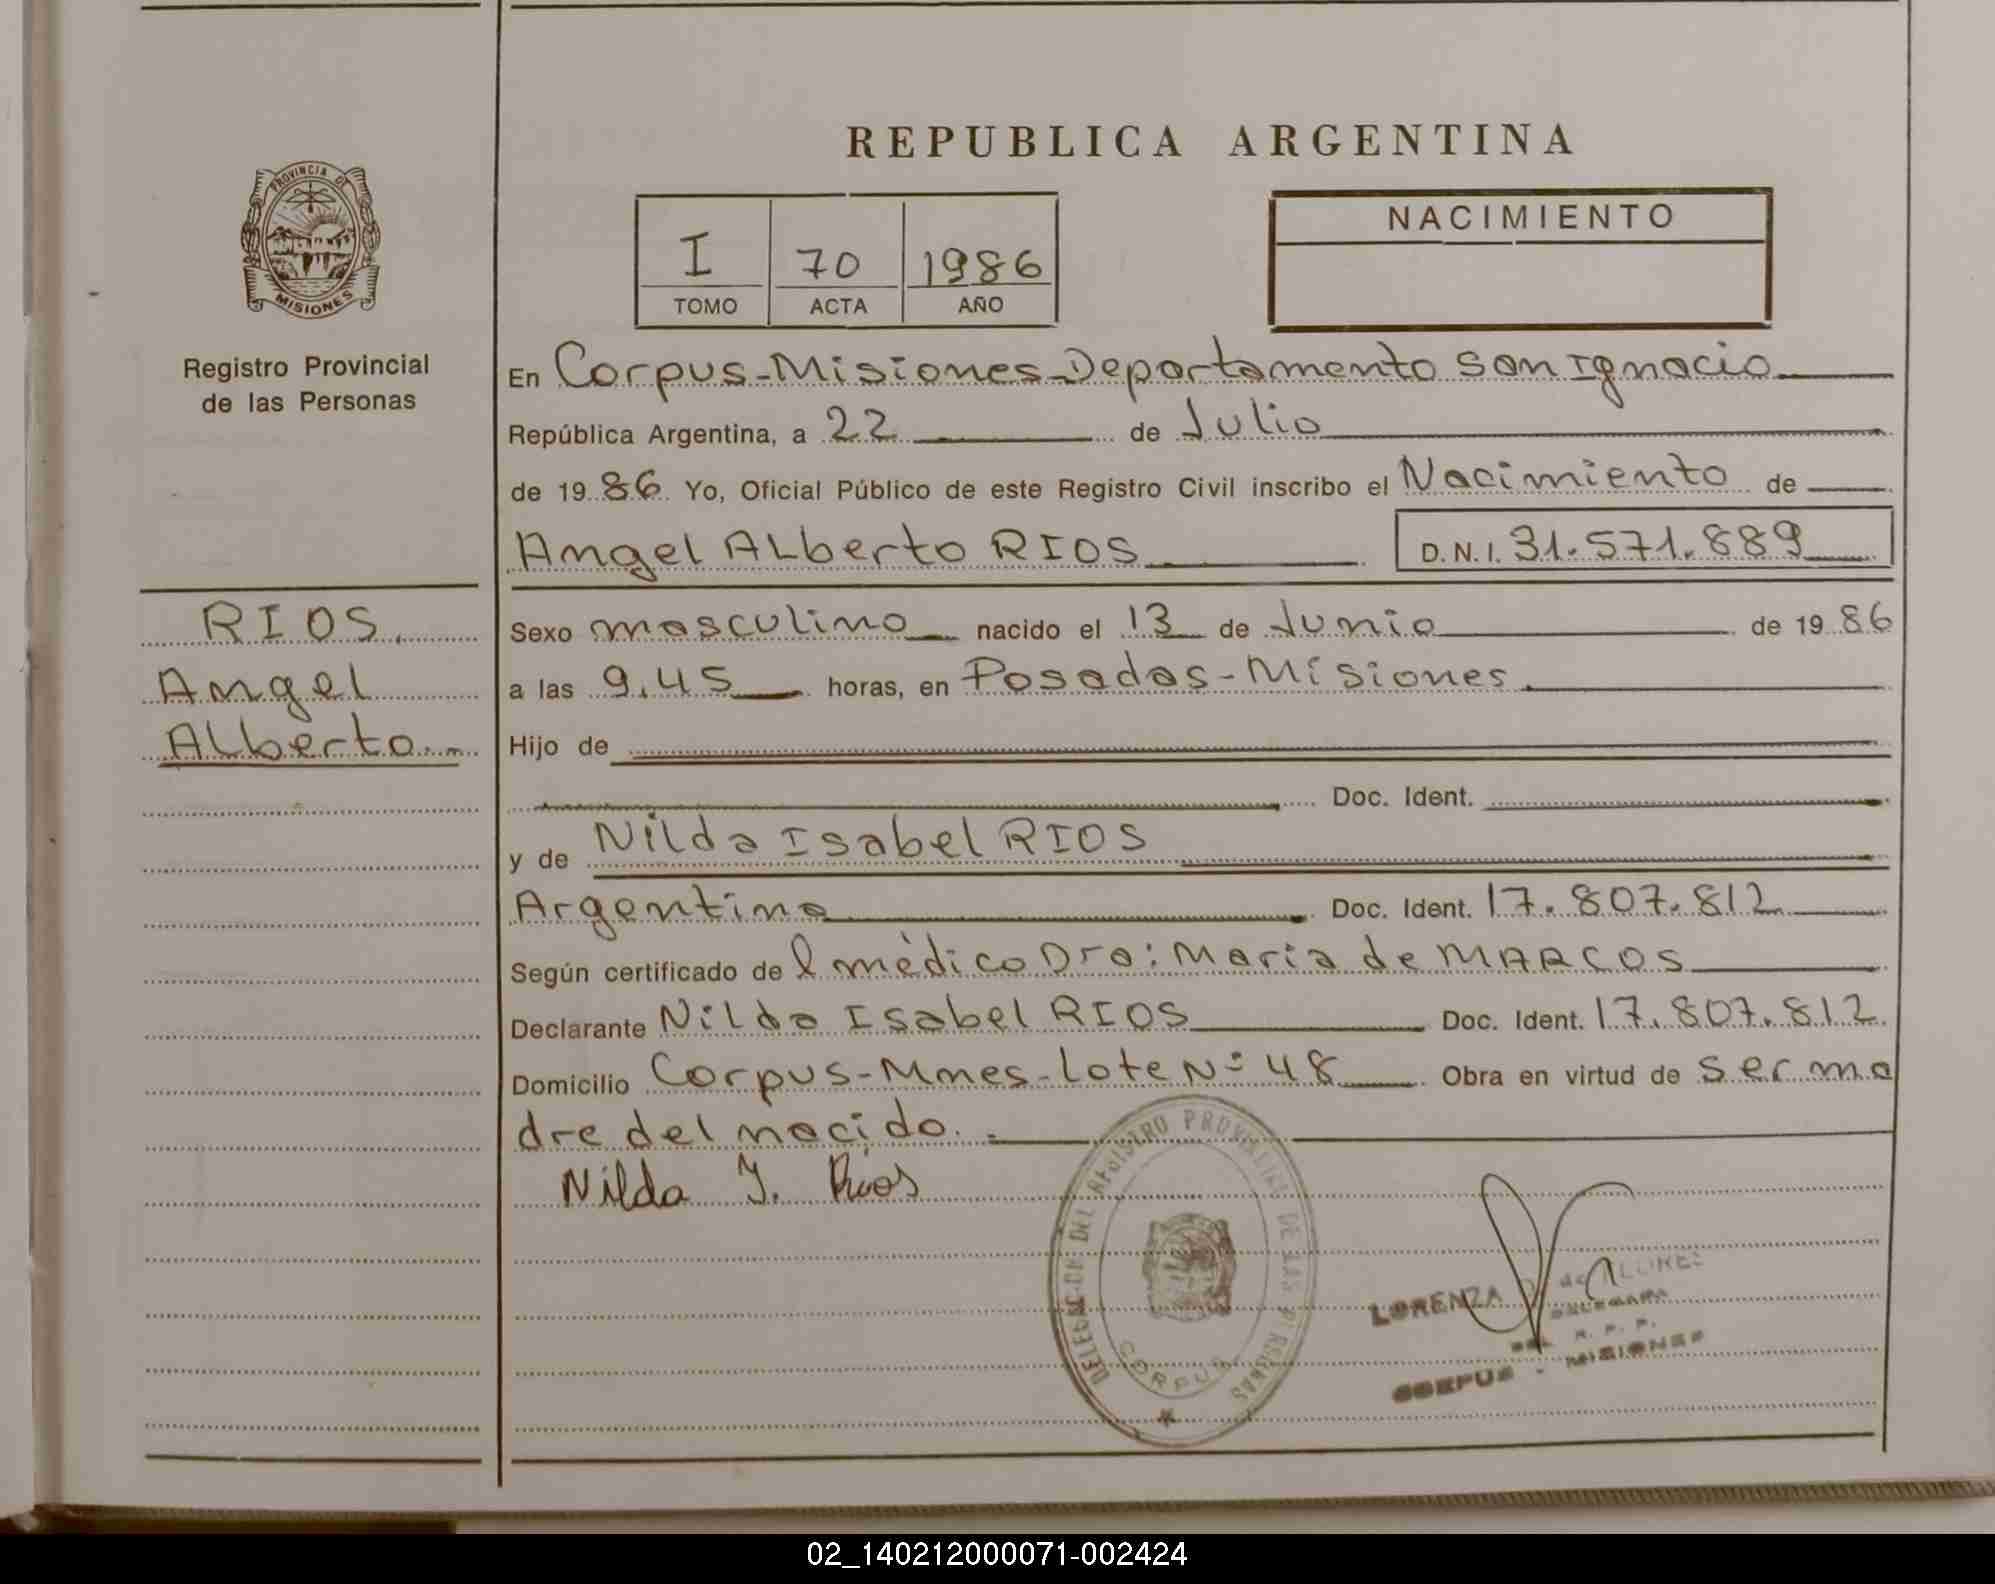 REPUBLICA ARGENTINA
PROVINCIA DE
MISIONES
Registro Provincial
de las Personas
I 70 1986
TOMO ACTA AÑO
NACIMIENTO
En Corpus-Misiones-Departamento San Ignacio
República Argentina, a 22 de Julio
de 1986 Yo, Oficial Público de este Registro Civil inscribo el Nacimiento de
Angel ALberto RIOS D.N.I. 31.571.889
RIOS,
Angel
ALberto..
Sexo masculino nacido el 13 de Junio de 1986
a las 9,45 horas, en Posadas-Misiones
Hijo de
Doc. Ident.
y de Nilda Isabel RIOS
Argentina Doc. Ident. 17.807.812
Según certificado de l mèdico Dra: Maria de MARCOS
Declarante Nilda Isabel RIOS Doc. Ident. 17.807.812
Domicilio Corpus-Mnes-Lote Nº 48 Obra en virtud de ser ma
dre del nacido.
Nilda I. Rios
DELEGACION DEL REGISTRO PROVINCIAL DE LAS PERSONAS
CORPUS
LORENZA de
DELEGADA
R. P. P.
CORPUS - MISIONES
02_140212000071-002424